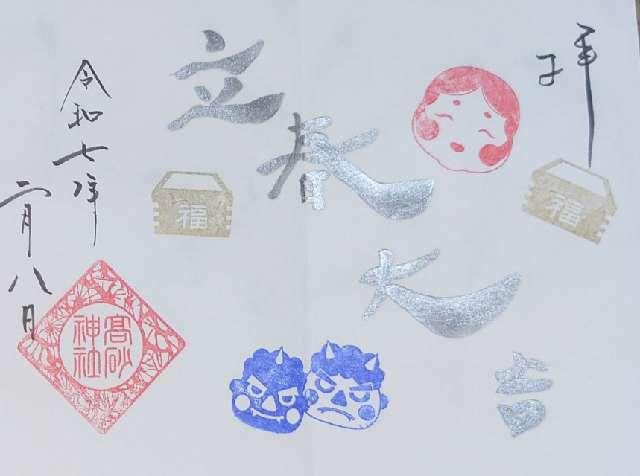 奉拝
福
立春大吉
福
令和七年
二月八日
高砂
神社